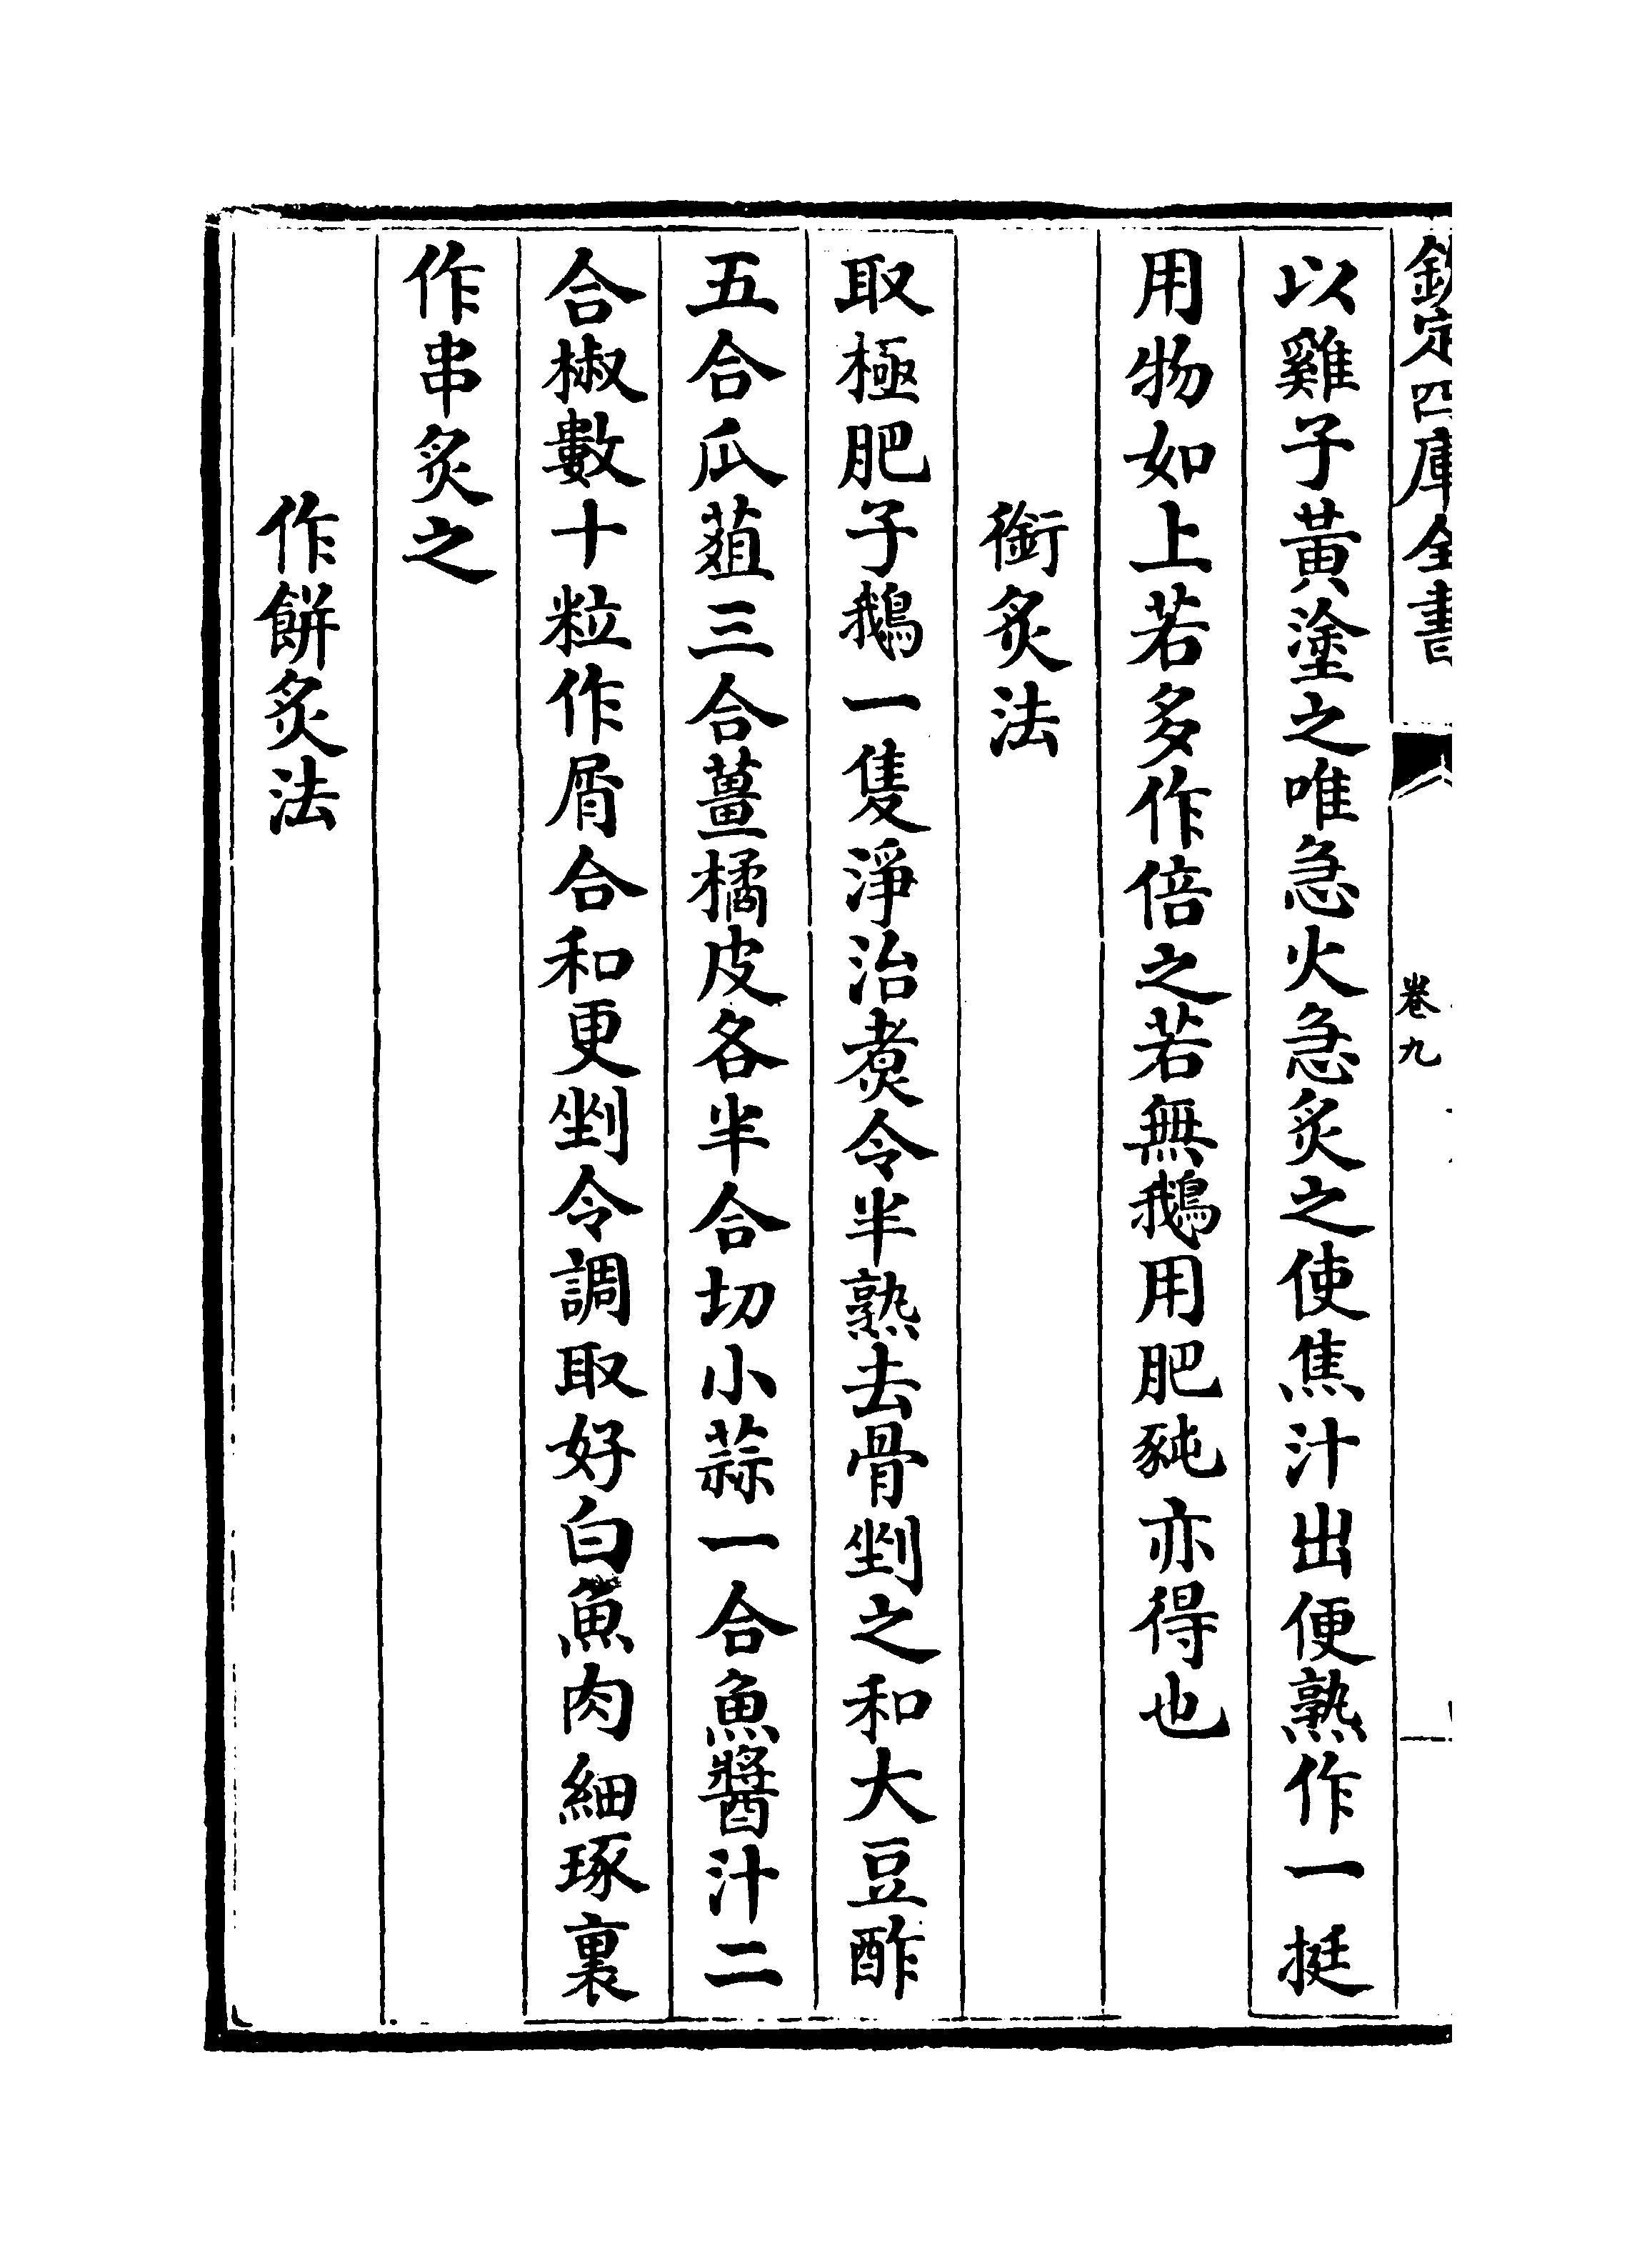 欽定四庫全書
卷九
以雞子黃塗之唯急火急炙之使焦汁出便熟作一挺
用物如上若多作倍之若無鵝用肥豘亦得也
銜炙法
取極肥子鵝一隻淨治煑令半熟去骨剉之和大豆酢
五合瓜菹三合薑橘皮各半合切小蒜一合魚醬汁二
合椒數十粒作屑合和更剉令調取好白魚肉細琢裏
作串炙之
作餅炙法